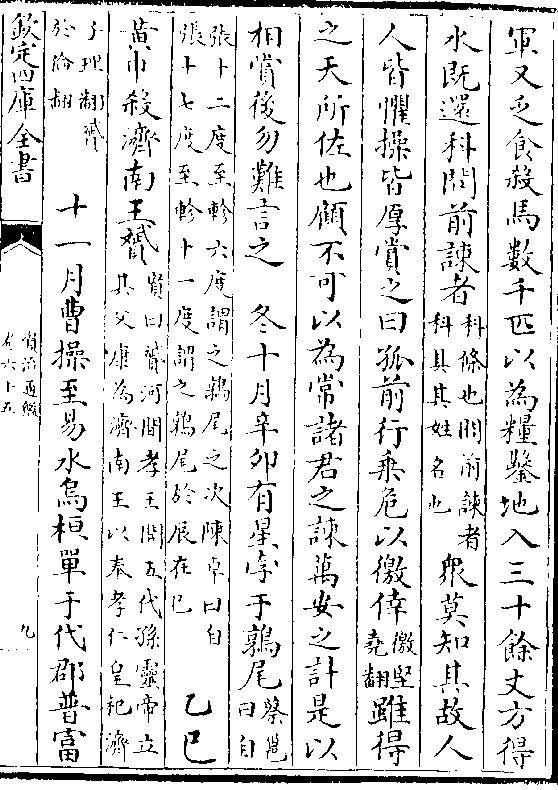 軍又乏食殺馬數千匹以為糧鑿地入三十餘丈方得
水既還科問前諫者科條也問前諫者科具其姓名也衆莫知其故人
人皆懼操皆厚賞之曰孤前行乗危以徼倖徼堅堯翻雖得
之天所佐也顧不可以為常諸君之諫萬安之計是以
相賞後勿難言之 冬十月辛卯有星孛于鶉尾蔡邕曰自
張十二度至軫六度謂之鶉尾之次陳卓曰自張十七度至軫十一度謂之鶉尾於辰在巳 乙巳
黄巾殺濟南王贇賢曰贇河間孝王開五代孫靈帝立其父康為濟南王以奉孝仁皇祀濟
子理翻贇於倫翻 十一月曹操至易水烏桓單于代郡普富
欽定四庫全書
資治通鑑
卷六十五
九